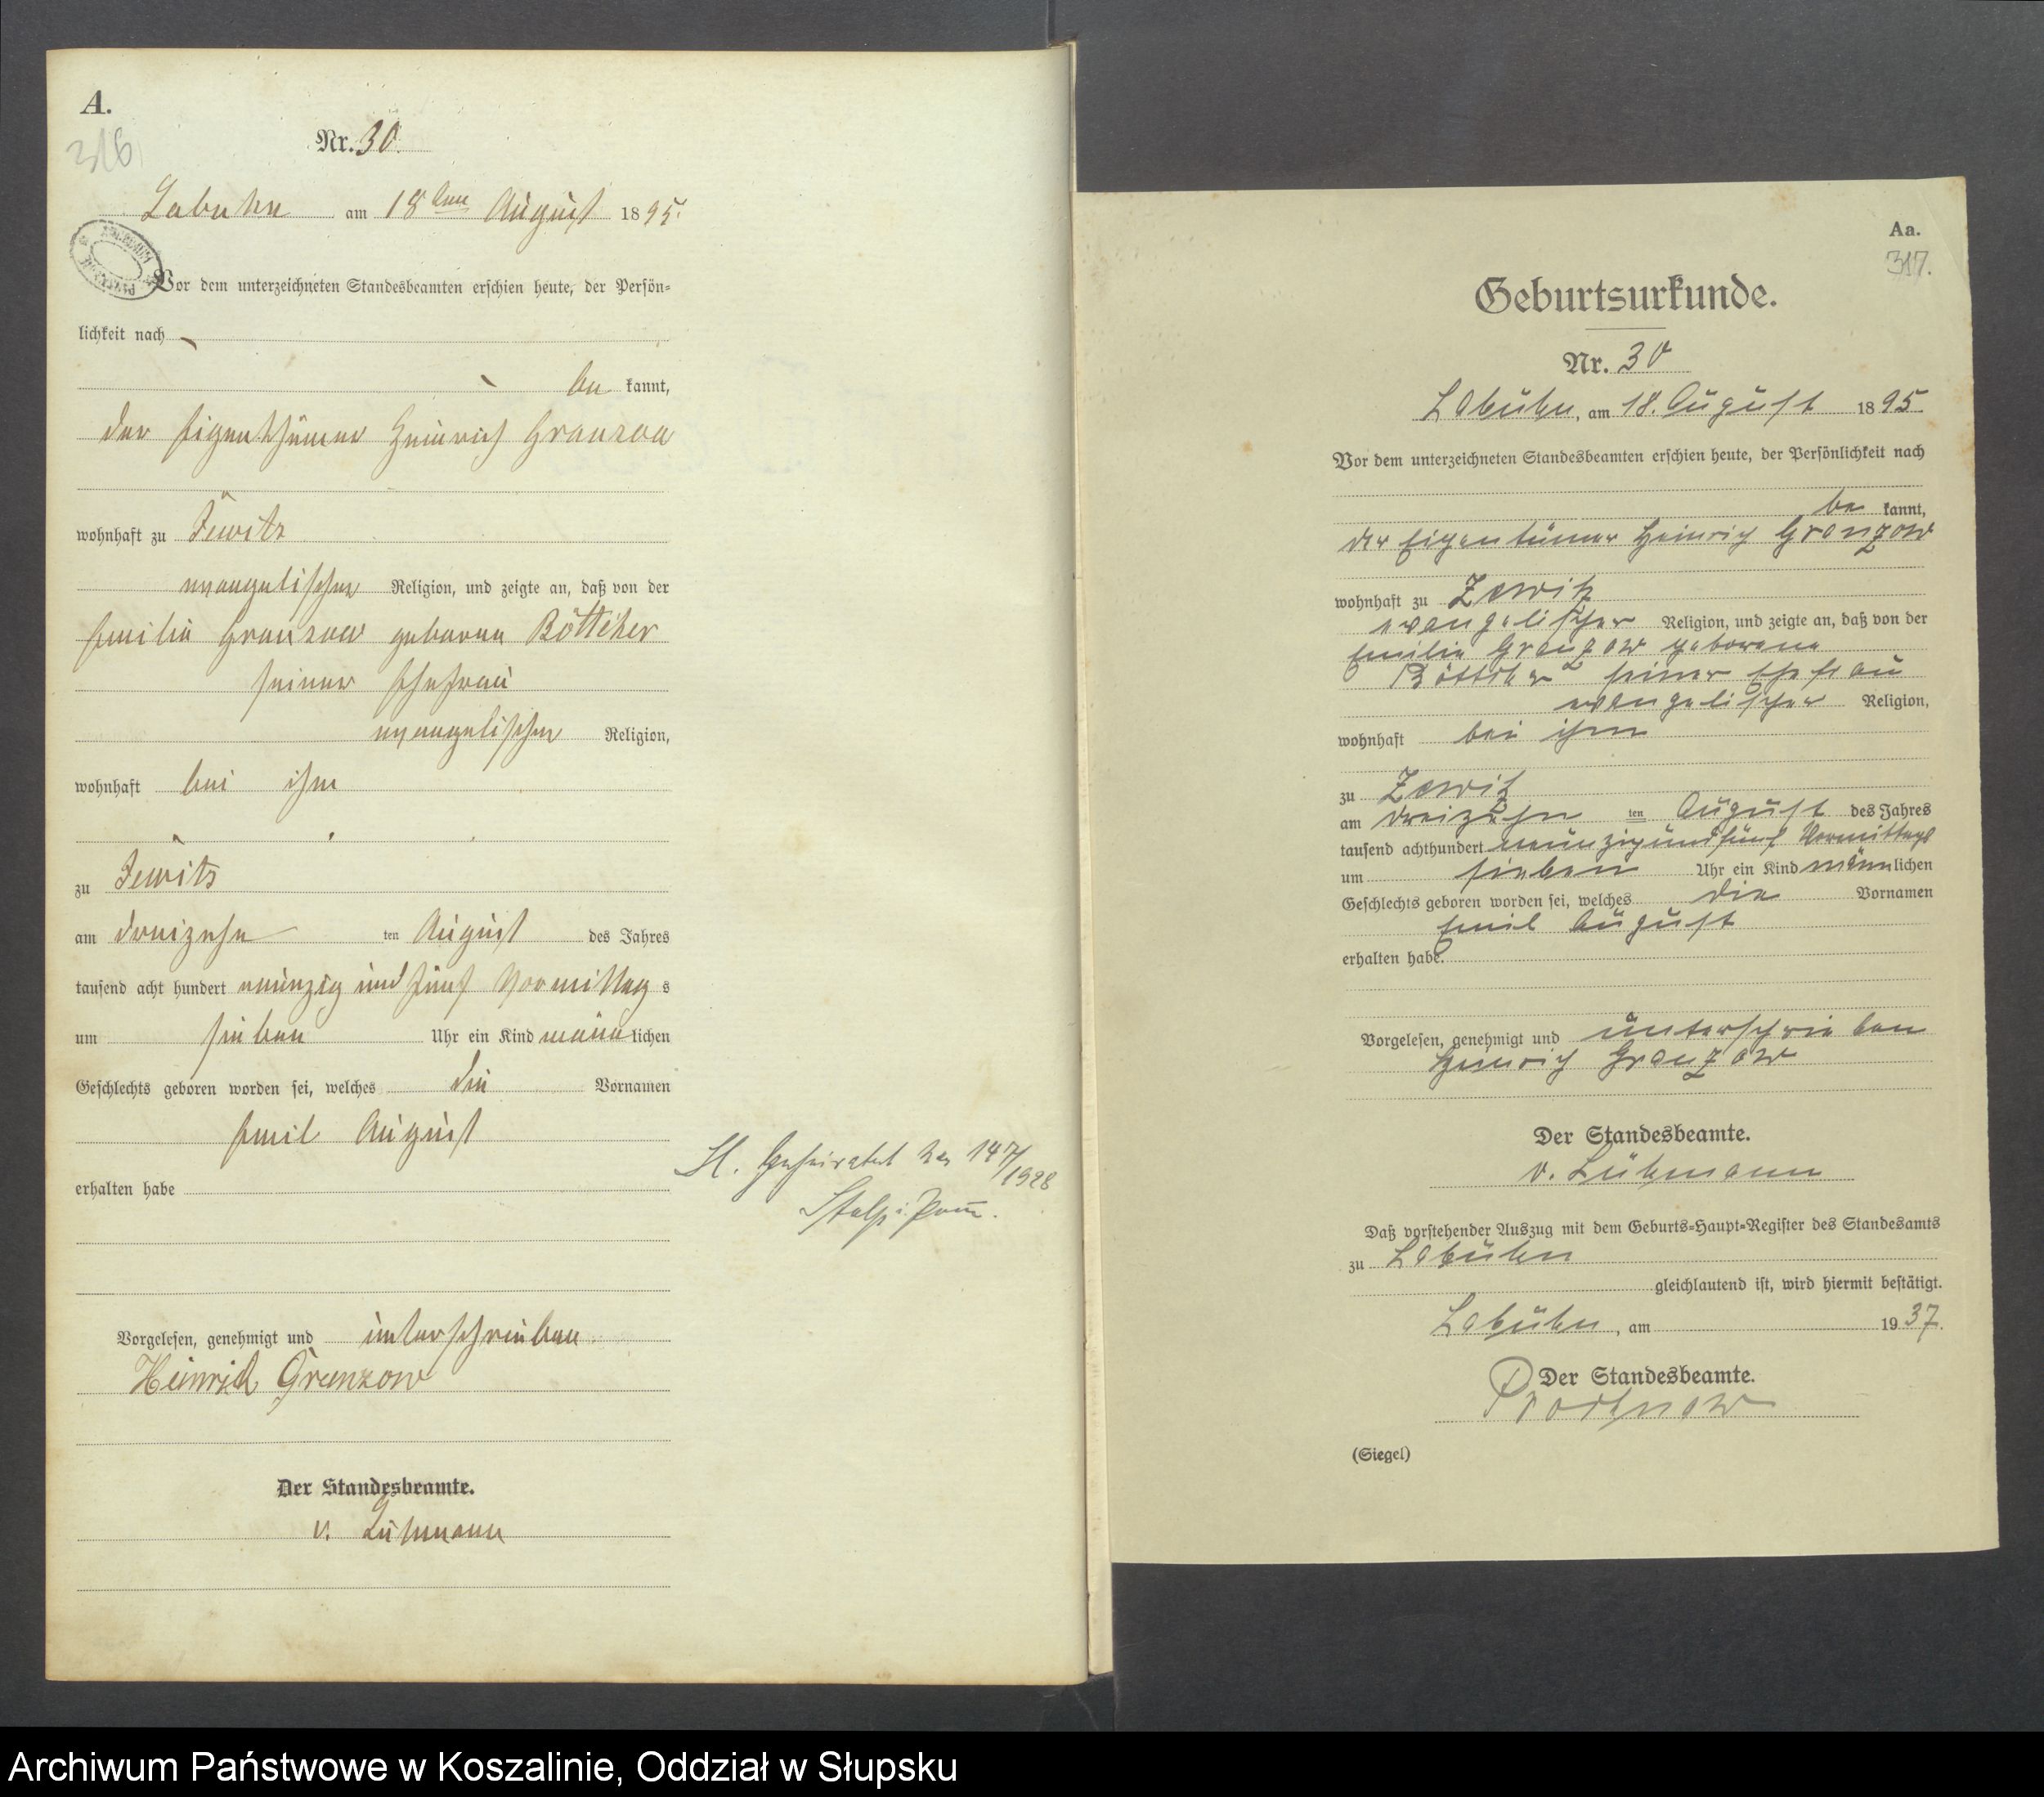 A.
316
Nr. 30.
Labuhn am 18ten August 1895.
Vor dem unterzeichneten Standesbeamten erschien heute, der Persön-
lichkeit nach
be kannt,
der Eigenthümer Heinrich Granzow
wohnhaft zu Zewitz
evangelischer Religion, und zeigte an, daß von der
Emilie Granzow geborene Böttcher
seiner Ehefrau
evangelischer Religion,
wohnhaft bei ihm
zu Zewitz
am dreizehn ten August des Jahres
tausend acht hundert neunzig und fünf Vormittag s
um sieben Uhr ein Kind männ lichen
Geschlechts geboren worden sei, welches die Vornamen
Emil August
erhalten habe
Vorgelesen, genehmigt und unterschrieben
Heinrich Granzow
Der Standesbeamte.
v. Lühmann
St. Geheiratet 147/1928
Stolp i. Pom.
Aa.
317.
Geburtsurkunde.
Nr. 30
Labuhn, am 18. August 1895
Vor dem unterzeichneten Standesbeamten erschien heute, der Persönlichkeit nach
be kannt,
der Eigentümer Heinrich Granzow
wohnhaft zu Zewitz
evangelischer Religion, und zeigte an, daß von der
Emilie Granzow geborene
Böttcher seiner Ehefrau
evangelischer Religion,
wohnhaft bei ihm
zu Zewitz
am dreizehn ten August des Jahres
tausend achthundert neunzigundfünf Vormittags
um sieben Uhr ein Kind männlichen
Geschlechts geboren worden sei, welches die Vornamen
Emil August
erhalten habe.
Vorgelesen, genehmigt und unterschrieben
Heinrich Granzow
Der Standesbeamte.
v. Lühmann
Daß vorstehender Auszug mit dem Geburts-Haupt-Register des Standesamts
zu Labuhn
gleichlautend ist, wird hiermit bestätigt.
Labuhn, am 1937.
Der Standesbeamte.
(Siegel)
Archiwum Państwowe w Koszalinie, Oddział w Słupsku